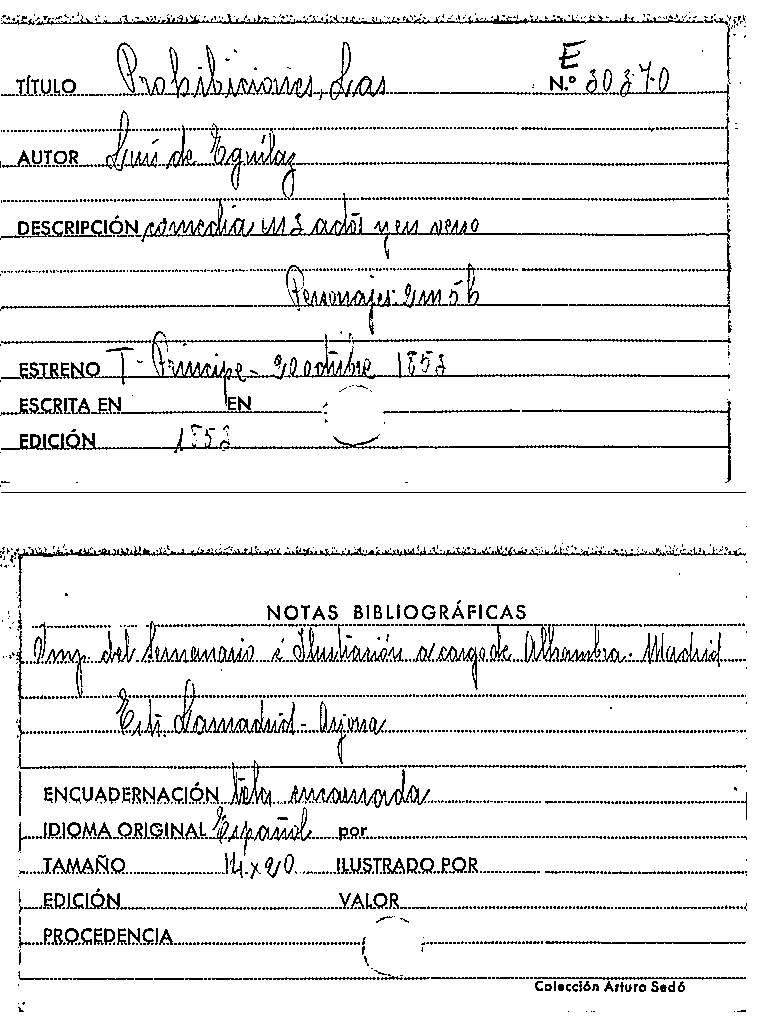 E
TÍTULO Prohibiciones, Las N.º 30370
AUTOR Luis de Eguílaz
DESCRIPCIÓN comedia en 3 actos y en verso
Personajes: 2m 5h
ESTRENO T- Príncipe - 20 octubre 1853
ESCRITA EN EN
EDICIÓN 1853
NOTAS BIBLIOGRÁFICAS
Imp. del Semanario é Ilustración a cargo de Alhambra. Madrid
Est: Lamadrid - Arjona
ENCUADERNACIÓN tela encarnada
IDIOMA ORIGINAL Español por
TAMAÑO 14 x 20 ILUSTRADO POR
EDICIÓN VALOR
PROCEDENCIA
Colección Arturo Sedó